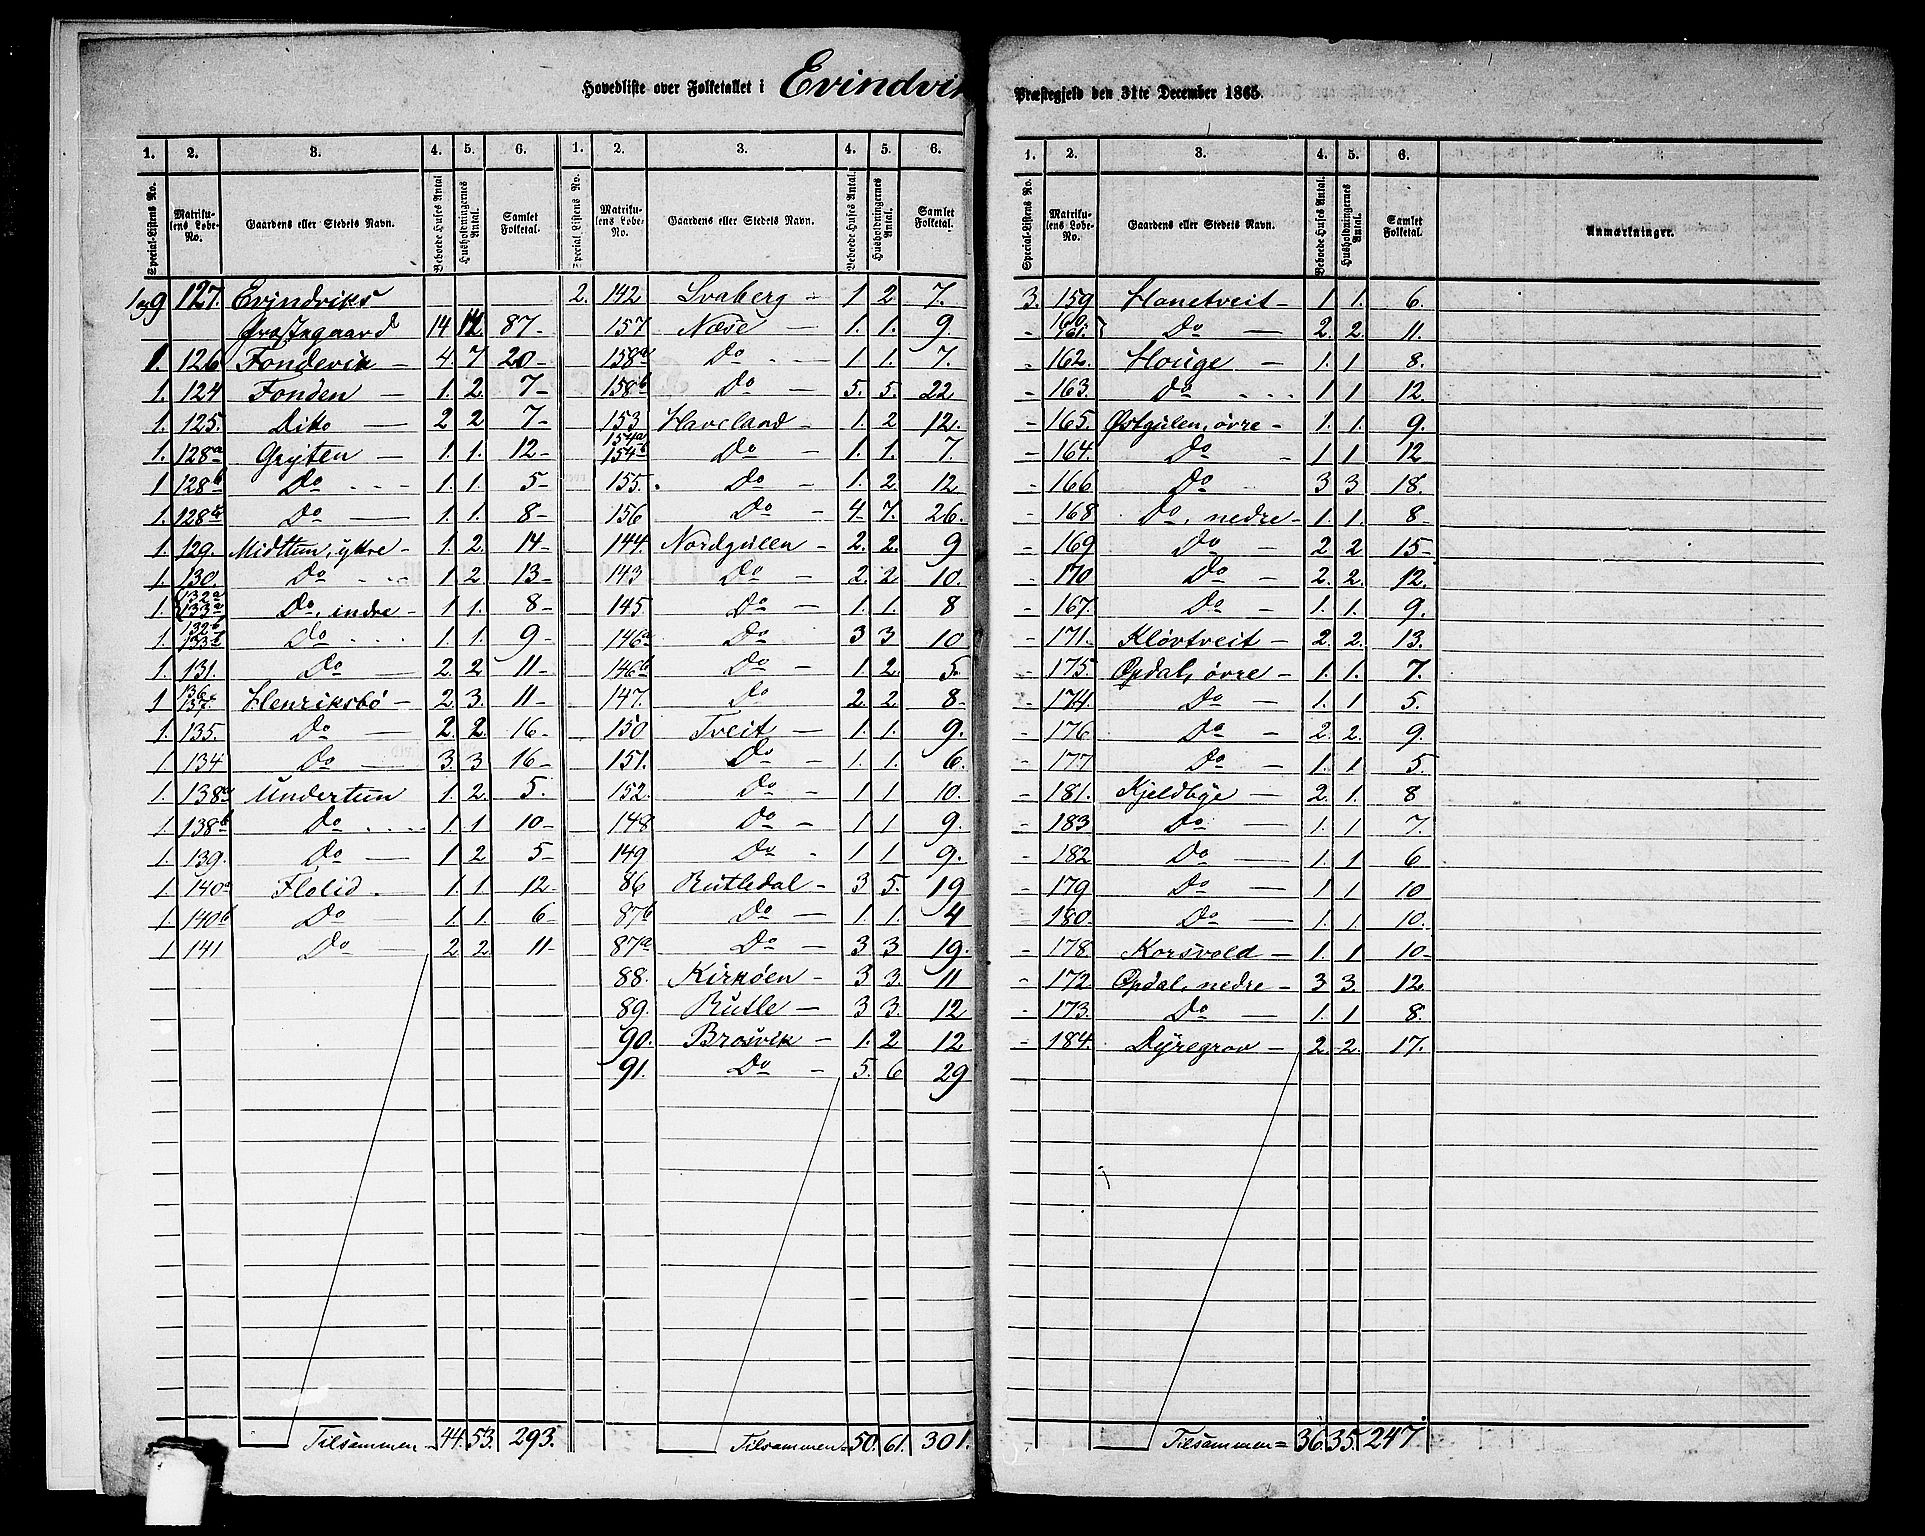 Hovedliste over Folketallet i Evindvik Præstegjeld den 31te December 1865.
1. 2. 3. 4. 5. 6. 1. 2. 3. 4. 5. 6.
Special-Listens No. Matrikulens Løbe-No. Gaardens eller Stedets Navn. Beboede Huses Antal Husholdningernes Antal. Samlet Folketal. Special-Listens No. Matrikulens Løbe-No. Gaardens eller Stedets Navn. Beboede Huses Antal. Husholdningernes Antal. Samlet Folketal.
1 og 9 127. Evindviks
Præstegaard 14 12 87-
1. 126 Fondevik - 4. 7 20-
1. 124 Fonden - 1. 2. 7-
1. 125. Dike - 2 2 7-
1. 128a Gryten - 1. 1. 12-
1 128b Do - 1. 1. 5-
1. 128c Do - 1. 1. 8-
1. 129. Midttun, yttre - 1. 2 14-
1 130. Do - 1 2 13-
1. 132a 133a Do, indre - 1 1. 8-
1. 132b 133b Do - 1. 1. 9-
1. 131. Do - 2. 2 11-
1 136 137. Henriksbø - 2 3. 11-
1. 135. Do - 2. 2. 16-
1 134 Do - 3. 3 16-
1. 138a Undertun 1. 2. 5.
1. 138b Do - 1. 1 10-
1. 139. Do - 1 2 5-
1. 140a Flolid - 1. 1 12-
1. 140b Do - 1. 1. 6-
1 141 Do - 2 2. 11-
Tilsammen - 44. 53. 293.
2. 142 Svaberg - 1 2. 7.
157 Næse - 1. 1. 9.
158a Do - 1 1. 7.
158b Do - 5. 5. 22
153 Haveland - 1. 2 12.
154a 154b Do - 1. 1. 7.
155. Do - 1. 2 12
156 Do - 4 7. 26.
144. Nordgulen - 2. 2. 9
143 Do - 2. 2 10.
145. Do - 1. 1. 8
146a Do 3 3 10
146b Do - 1. 2. 5.
147. Do 2. 2. 8-
150 Tveit - 1. 1. 9.
151. Do - 1. 1. 6.
152. Do - 1 1 10.
148 Do - 1 1. 9.
149 Do - 1 1 9.
86 Rutledal - 3 5. 19
87b Do - 1. 1. 4
87a Do - 3 3 19.
88. Kirkøen - 3 3. 11
89. Rutle - 3 3. 12
90. Brosvik - 1. 2 12
91. Do - 5. 6 29
Tilsammen = 50. 61. 301.
1. 2. 3. 4. 5. 6.
Special-Listens No. Matrikulens Løbe-No. Gaardens eller Stedets Navn. Beboede Huses Antal. Husholdningernes Antal. Samlet Folketal. Anmærkninger.
3. 159 Hanetveit - 1 1. 6.
- 160 161. Do - 2. 2. 11.
- 162. Houge - 1. 1 8.
- 163. Do - 1 1 12.
- 165. Østgulen, øvre - 1. 1. 9.
- 164. Do - 1 1 12
- 166 Do 3 3 18.
- 168 Do, nedre - 1. 1. 8-
- 169 Do - 2 2 15-
- 170 Do - 2. 2. 12.
- 167. Do - 1. 1. 9.
- 171. Kløvtveit - 2. 2. 13.
- 175. Opdal, øvre - 1. 1. 7.
- 174. Do - 1. 1 5.
- 176 Do - 2. 2. 9
- 177 Do - 1. 1 5.
- 181. Kjeldbye - 2. 1. 8
- 183 Do - 1. 1 7.
- 182 Do - 1. 1 6
- 179 Do - 1 1 10
- 180 Do - 1. 1. 10.
- 178. Korsvold - 1. 1 10-
- 172. Opdal, nedre - 3 3. 12
- 173. Do - 1. 1 8.
- 184. Dyregrov - 2. 2. 17.
Tilsammen = 36. 35. 247.